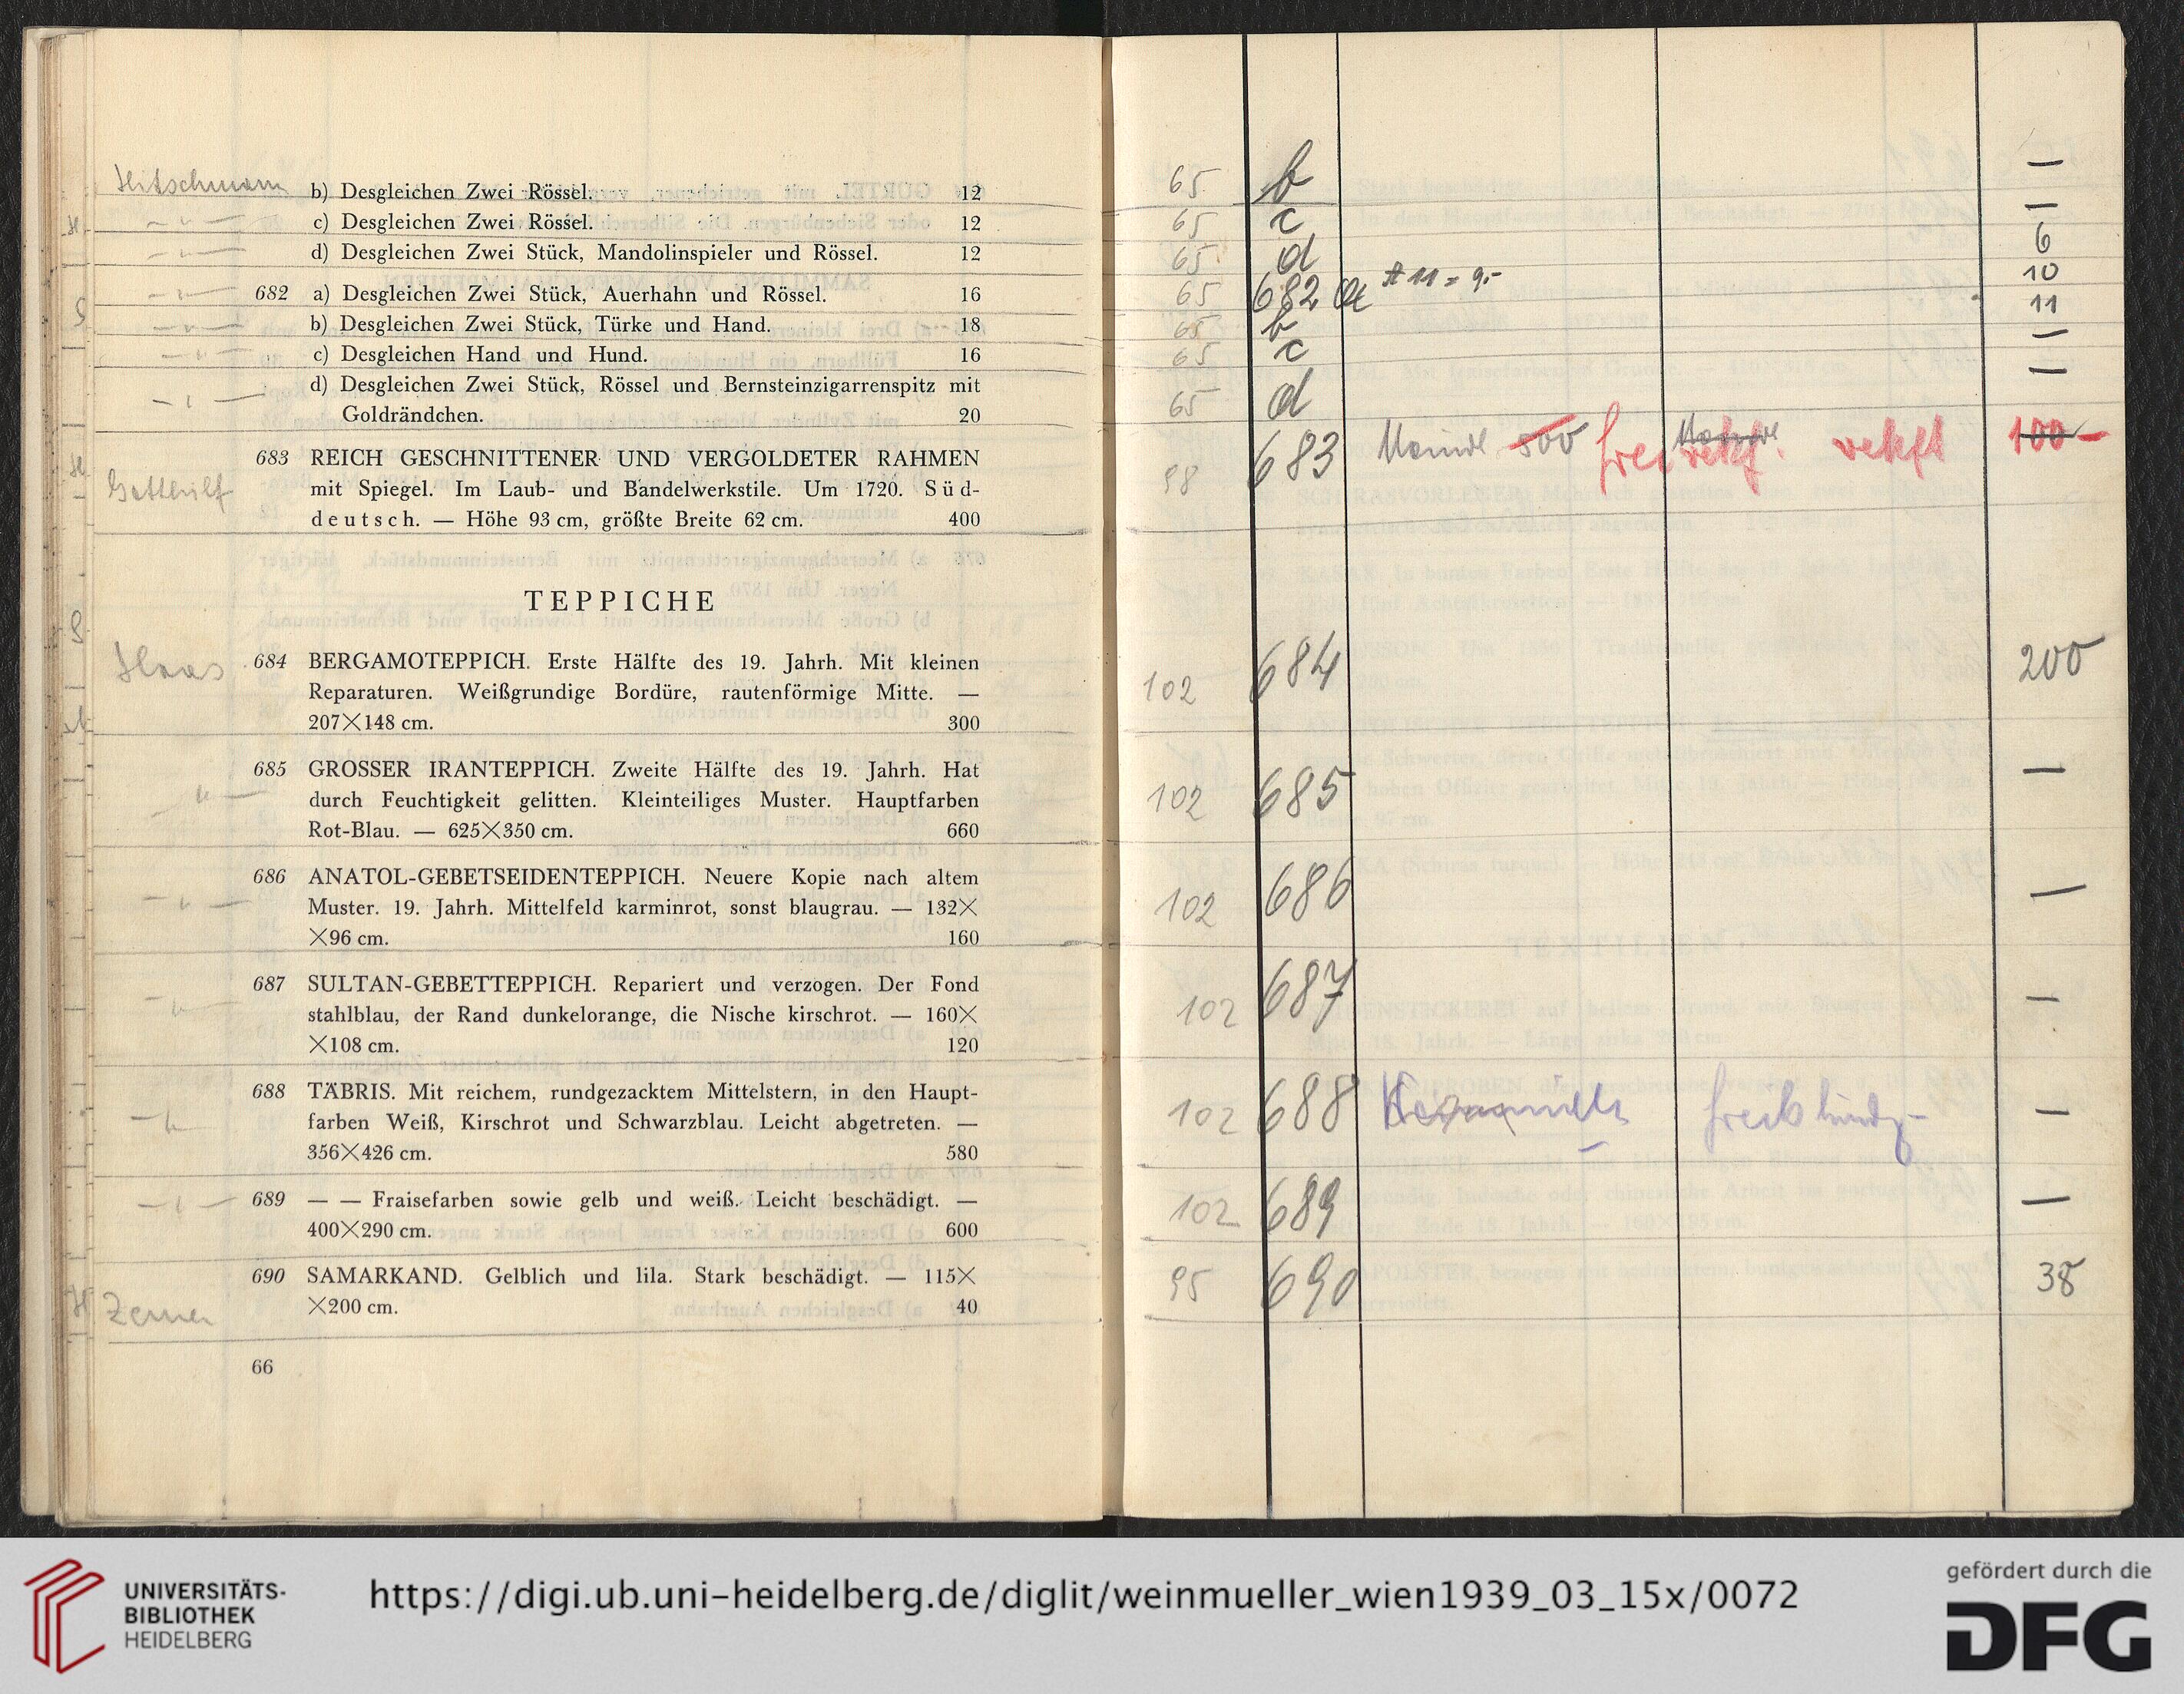 Hitschmann
b) Desgleichen Zwei Rössel. 12
c) Desgleichen Zwei Rössel. 12
d) Desgleichen Zwei Stück, Mandolinspieler und Rössel. 12
682 a) Desgleichen Zwei Stück, Auerhahn und Rössel. 16
b) Desgleichen Zwei Stück, Türke und Hand. 18
c) Desgleichen Hand und Hund. 16
d) Desgleichen Zwei Stück, Rössel und Bernsteinzigarrenspitz mit
Goldrändchen. 20
683 REICH GESCHNITTENER UND VERGOLDETER RAHMEN
Gotthilf
mit Spiegel. Im Laub- und Bandelwerkstile. Um 1720. Süd-
deutsch. — Höhe 93 cm, größte Breite 62 cm. 400
TEPPICHE
Haas
684 BERGAMOTEPPICH. Erste Hälfte des 19. Jahrh. Mit kleinen
Reparaturen. Weißgrundige Bordüre, rautenförmige Mitte. —
207×148 cm. 300
685 GROSSER IRANTEPPICH. Zweite Hälfte des 19. Jahrh. Hat
durch Feuchtigkeit gelitten. Kleinteiliges Muster. Hauptfarben
Rot-Blau. — 625×350 cm. 660
686 ANATOL-GEBETSEIDENTEPPICH. Neuere Kopie nach altem
Muster. 19. Jahrh. Mittelfeld karminrot, sonst blaugrau. — 132×
×96 cm. 160
687 SULTAN-GEBETTEPPICH. Repariert und verzogen. Der Fond
stahlblau, der Rand dunkelorange, die Nische kirschrot. — 160×
×108 cm. 120
688 TÄBRIS. Mit reichem, rundgezacktem Mittelstern, in den Haupt-
farben Weiß, Kirschrot und Schwarzblau. Leicht abgetreten. —
356×426 cm. 580
689 — — Fraisefarben sowie gelb und weiß. Leicht beschädigt. —
400×290 cm. 600
690 SAMARKAND. Gelblich und lila. Stark beschädigt. — 115×
Zerner
×200 cm. 40
66
65 b —
65 c —
65 d 6
65 682 a # 11 = 9.- 10
65 b 11
65 c —
65 d —
98 683 500 100
102 684 200
102 685 —
102 686 —
102 687 —
102 688 —
102 689 —
95 690 38
UNIVERSITÄTS-
BIBLIOTHEK
HEIDELBERG
https://digi.ub.uni-heidelberg.de/diglit/weinmueller_wien1939_03_15x/0072
gefördert durch die
DFG